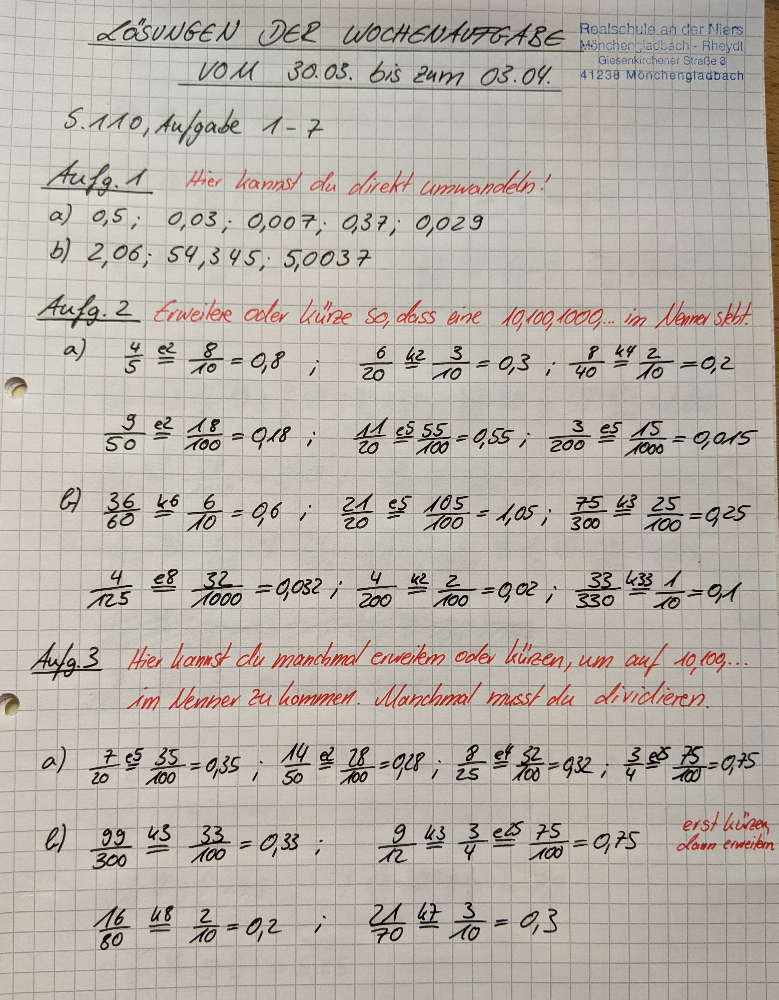 LÖSUNGEN DER WOCHENAUFGABE
Realschule an der Niers
Mönchengladbach - Rheydt
Giesenkirchener Straße 8
41238 Mönchengladbach
VOM 30.03. bis zum 03.04.
S.110, Aufgabe 1-7
Aufg. 1 Hier kannst du direkt umwandeln!
a) 0,5; 0,03; 0,007; 0,37; 0,029
b) 2,06; 54,345; 5,0037
Aufg. 2 Erweitere oder kürze so, dass eine 10,100,1000,... im Nenner steht.
a) 4/5 e2= 8/10 = 0,8 ; 6/20 k2= 3/10 = 0,3 ; 8/40 k4= 2/10 = 0,2
9/50 e2= 18/100 = 0,18 ; 11/20 e5= 55/100 = 0,55 ; 3/200 e5= 15/1000 = 0,015
b) 36/60 k6= 6/10 = 0,6 ; 21/20 e5= 105/100 = 1,05 ; 75/300 k3= 25/100 = 0,25
4/125 e8= 32/1000 = 0,032 ; 4/200 k2= 2/100 = 0,02 ; 33/330 k33= 1/10 = 0,1
Aufg. 3 Hier kannst du manchmal erweitern oder kürzen, um auf 10,100,...
im Nenner zu kommen. Manchmal musst du dividieren.
a) 7/20 e5= 35/100 = 0,35 ; 14/50 e2= 28/100 = 0,28 ; 8/25 e4= 32/100 = 0,32 ; 3/4 e25= 75/100 = 0,75
b) 99/300 k3= 33/100 = 0,33 ; 9/12 k3= 3/4 e25= 75/100 = 0,75
erst kürzen,
dann erweitern
16/80 k8= 2/10 = 0,2 ; 21/70 k7= 3/10 = 0,3